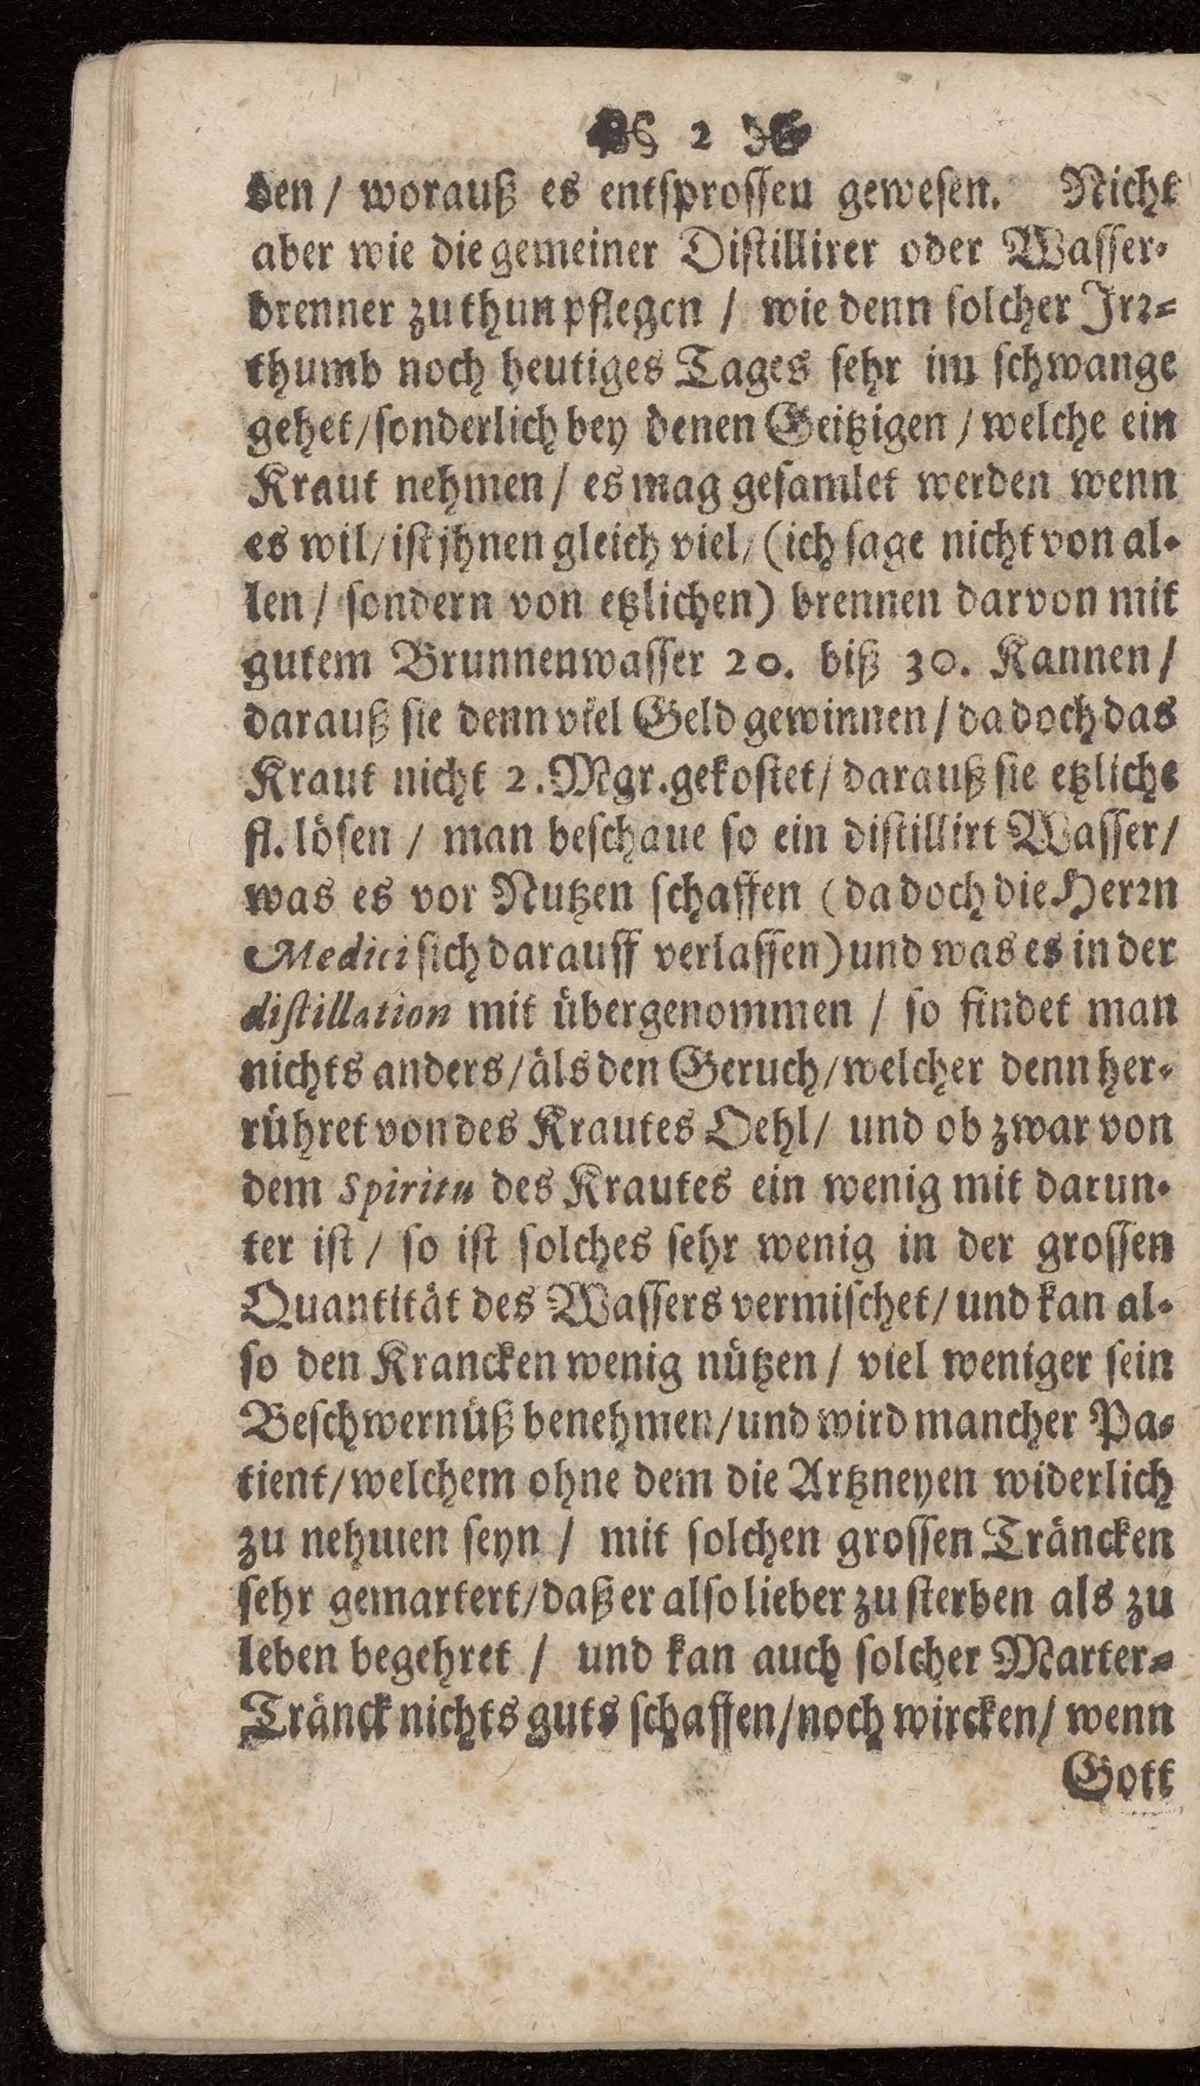 2
den / worauß es entsprossen gewesen. Nicht
aber wie die gemeiner Distillirer oder Wasser-
brenner zu thun pflegen / wie denn solcher Irꝛ-
thumb noch heutiges Tages sehr im schwange
gehet / sonderlich bey denen Geitzigen / welche ein
Kraut nehmen / es mag gesamlet werden wenn
es wil / ist jhnen gleich viel / (ich sage nicht von al-
len / sondern von etzlichen) brennen darvon mit
gutem Brunnenwasser 20. biß 30. Kannen /
darauß sie denn viel Geld gewinnen / da doch das
Kraut nicht 2. Mgr. gekostet / darauß sie etzliche
fl. lösen / man beschaue so ein distillirt Wasser /
was es vor Nutzen schaffen (da doch die Herꝛn
Medici sich darauff verlassen) und was es in der
distillation mit übergenommen / so findet man
nichts anders / äls den Geruch / welcher denn her-
rühret von des Krautes Oehl / und ob zwar von
dem Spiritu des Krautes ein wenig mit darun-
ter ist / so ist solches sehr wenig in der grossen
Quantität des Wassers vermischet / und kan al-
so den Krancken wenig nützen / viel weniger sein
Beschwernüß benehmen / und wird mancher Pa-
tient / welchem ohne dem die Artzneyen widerlich
zu nehmen seyn / mit solchen grossen Träncken
sehr gemartert / daß er also lieber zu sterben als zu
leben begehret / und kan auch solcher Marter-
Tränck nichts guts schaffen / noch wircken / wenn
Gott